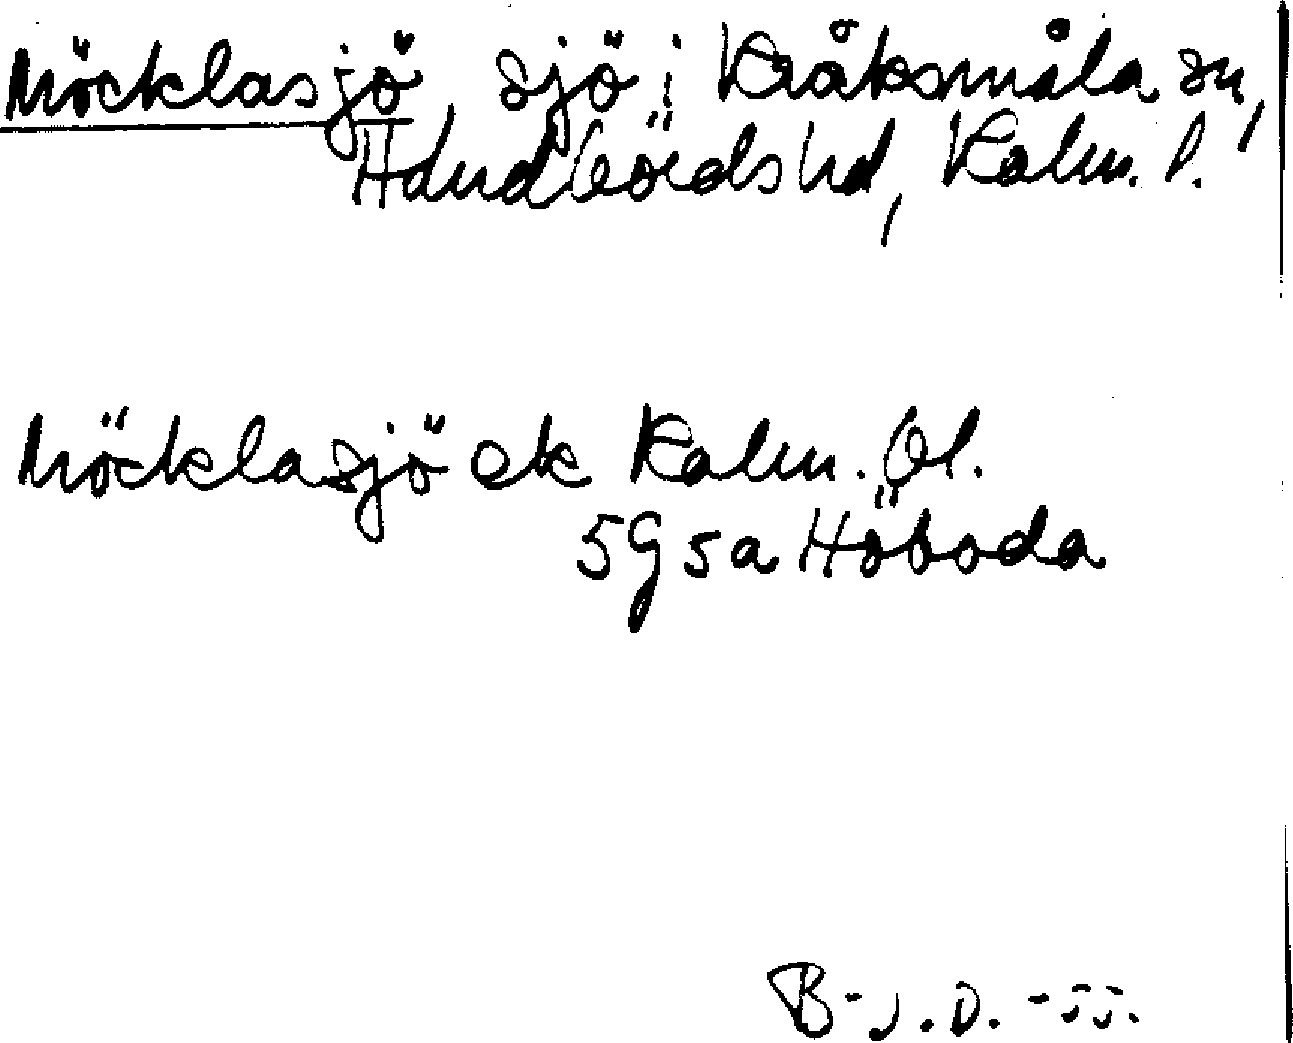 Möcklasjö, sjö i Kråksmåla sn,
Handbörds hd, Kalm. l.
Möcklasjö ek Kalm. Öl.
5G5a Höboda
B-J.D. -55.